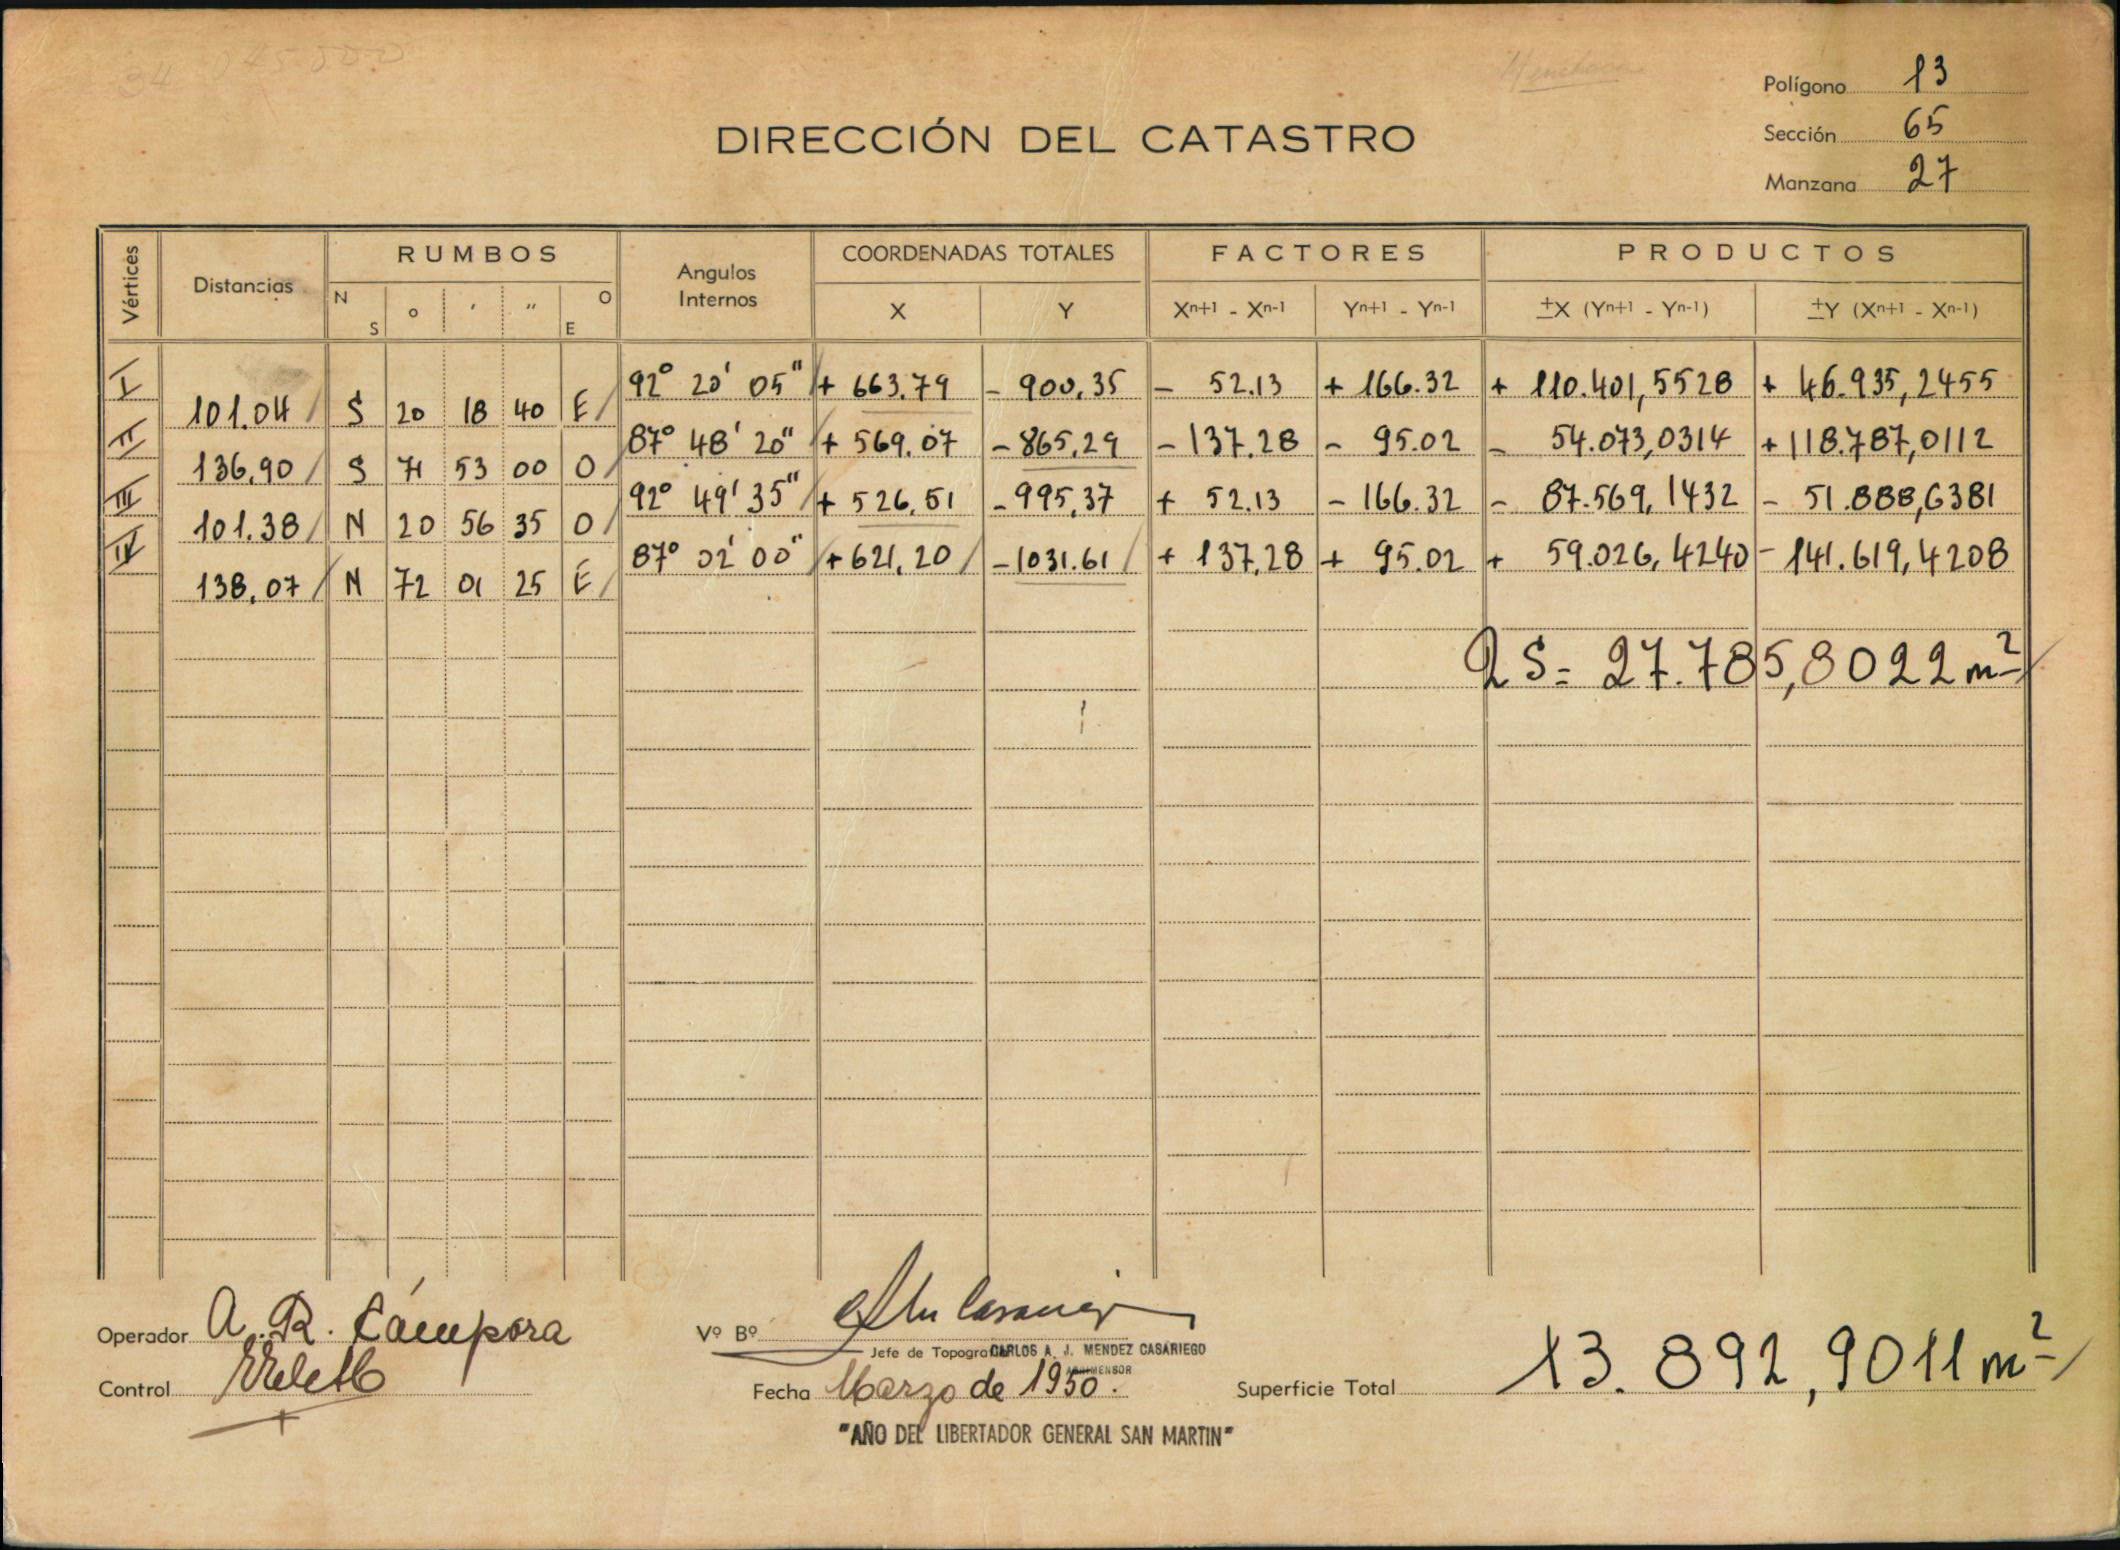 34 045.000
Polígono 13
Sección 65
Manzana 27
DIRECCIÓN DEL CATASTRO
Vértices Distancias RUMBOS Angulos Internos COORDENADAS TOTALES FACTORES PRODUCTOS
N S ° ′ ″ O E X Y Xn+1 - Xn-1 Yn+1 - Yn-1 ±X (Yn+1 - Yn-1) ±Y (Xn+1 - Xn-1)
I 92° 20' 05" + 663.79 - 900,35 - 52.13 + 166.32 + 110.401,5528 + 46.935,2455
101.04 S 20 18 40 E
II 87° 48' 20" + 569.07 - 865,29 - 137.28 - 95.02 - 54.073,0314 + 118.787,0112
136.90 S 71 53 00 O
III 92° 49' 35" + 526,51 - 995,37 + 52.13 - 166.32 - 87.569,1432 - 51.888,6381
101.38 N 20 56 35 O
IV 87° 02' 00" + 621,20 - 1031.61 + 137,28 + 95.02 + 59.026,4240 - 141.619,4208
138.07 N 72 01 25 E
2 S = 27.785,8022 m²
Operador A. R. Cámpora
Vº Bº
Jefe de Topografía CARLOS A. J. MENDEZ CASARIEGO
AGRIMENSOR
Control
Fecha Marzo de 1950.
Superficie Total 13.892,9011 m²
"AÑO DEL LIBERTADOR GENERAL SAN MARTIN"